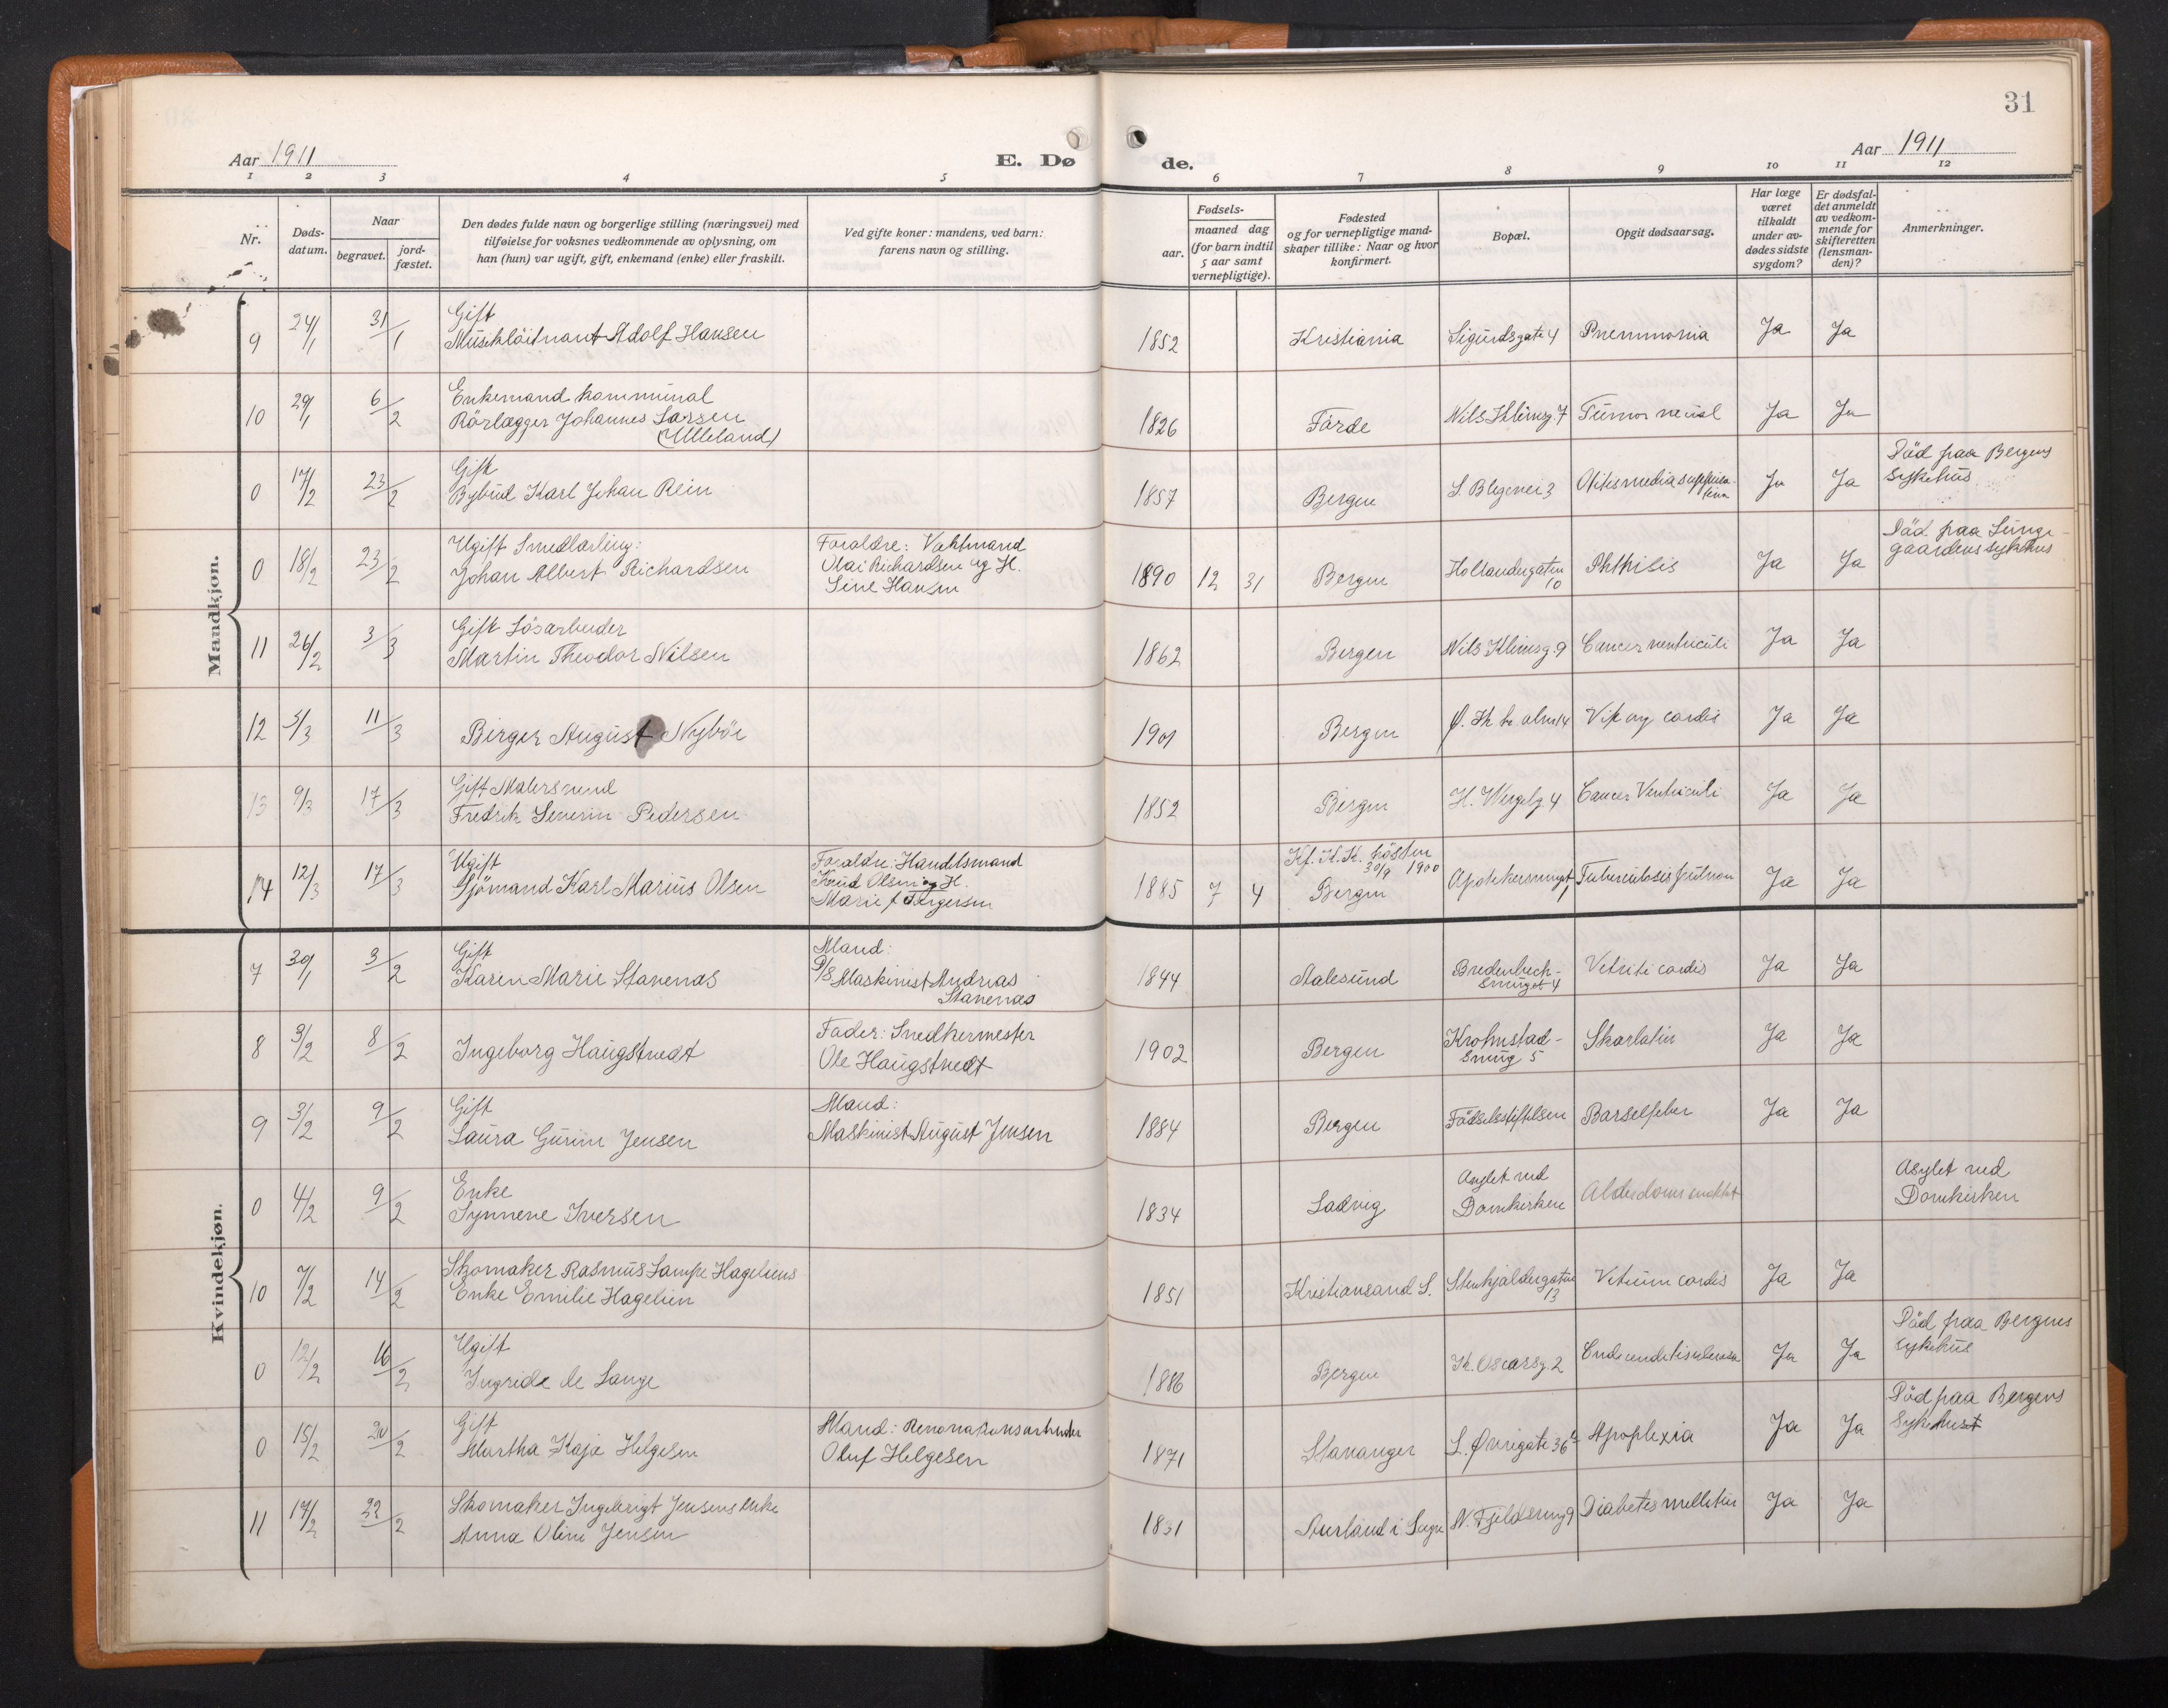 31
Aar 1911
E. Dø
de.
Aar 1911
1 2 3 4 5 6 7 8 9 10 11 12
Nr.
Døds-
datum.
Naar
begravet.
jord-
fæstet.
Den dødes fulde navn og borgerlige stilling (næringsvei) med
tilføielse for voksnes vedkommende av oplysning, om
han (hun) var ugift, gift, enkemand (enke) eller fraskilt.
Ved gifte koner: mandens, ved barn:
farens navn og stilling.
Fødsels-
aar.
maaned dag
(for barn indtil
5 aar samt
vernepligtige).
Fødested
og for vernepligtige mand-
skaper tillike: Naar og hvor
konfirmert.
Bopæl.
Opgit dødsaarsag.
Har læge
været
tilkaldt
under av-
dødes sidste
sygdom?
Er dødsfal-
det anmeldt
av vedkom-
mende for
skifteretten
(lensman-
den)?
Anmerkninger.
Mandkjøn.
9 24/1 31/1
Gift
Musikløitnant Adolf Hansen
1852 Kristiania Sigurdsgate 4 Pnemmonia Ja Ja
10 29/1 6/2
Enkemand kommunal
Rörlægger Johannes Larsen
(Ulleland)
1826 Förde Nils Klimsg. 7 Tumor Ja Ja
0 17/2 23/2
Gift
Bybud Karl Johan Rein
1857 Bergen 3 Otitis media Ja Ja
Död paa Bergens
sykehus
0 18/2 23/2
Ugift Smedlærling:
Johan Albert Richardsen
Forældre: Vaktmand
Olai Richardsen og H.
Sine Hansen
1890 12 31 Bergen Hollendergaten
10
Phthisis Ja Ja
Död paa Lunge-
gaardens sykehus
11 26/2 3/3
Gift Lösarbeider
Martin Theodor Nilsen
1862 Bergen Nils Klimsg. 9 Cancer ventriculi Ja Ja
12 5/3 11/3
Birger August Nybör
1901 Bergen 14 cordis Ja Ja
13 9/3 17/3
Gift Malersvend
Fredrik Severin Pedersen
1852 Bergen H. Wergelg. 4 Cancer Ventriculi Ja Ja
14 12/3 17/3
Ugift
Sjömand Karl Marius Olsen
Forældre: Handelsmand
Knud Olsen og H.
Marie f. Torgersen
1885 7 4
Kf. K.K. hösten
30/9 1900
Bergen
Apotekersmuget 1 Tuberculosis pulmon Ja Ja
Kvindekjøn.
7 30/1 3/2
Gift
Karen Marie Stavenas
Mand:
D/S Maskinist Andreas
Stavenas
1844 Aalesund Bredenbech-
smuget 4
cordis Ja Ja
8 3/2 8/2
Ingeborg Haugstvedt
Fader: Snedkermester
Ole Haugstvedt
1902 Bergen Krohnstad-
smug 5
Skarlatin Ja Ja
9 3/2 9/2
Gift
Laura Gurine Jensen
Mand:
Maskinist August Jensen
1884 Bergen Födselsstiftelsen Barselfeber Ja Ja
0 4/2 9/2
Enke
Synneve Iversen
1834 Ladvig
Asylet ved
Domkirken
Alderdomssvakhet
Asylet ved
Domkirken
10 7/2 14/2
Skomaker Rasmus Lampe Hageliens
Enke Emilie Hagelien
1851 Kristiansand S. Stenkjældergaten
13
Vitium cordis Ja Ja
0 12/2 16/2
Ugift
Ingride de Lange
1886 Bergen K. Oscarsg 2 Ja Ja
Död paa Bergens
sykehus
0 15/2 20/2
Gift
Martha Kaja Helgesen
Mand: Renovationsarbeider
Oluf Helgesen
1871 Stavanger L. Øvregate 36 Apoplexia Ja Ja
Död paa Bergens
Sykehus
11 17/2 22/2
Skomaker Ingebrigt Jensens enke
Anna Oline Jensen
1831 Aurland i Sogn N. Fjeldsmug 9 Diabetes mellitus Ja Ja